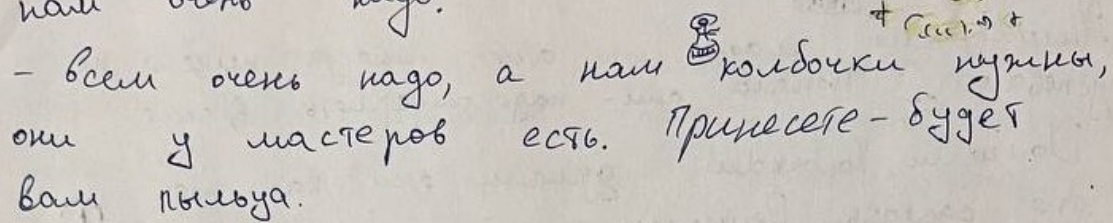 нам очень надо.
- всем очень надо, а нам колбочки нужны,
они у мастеров есть. Принесете - будет
вам пыльца.